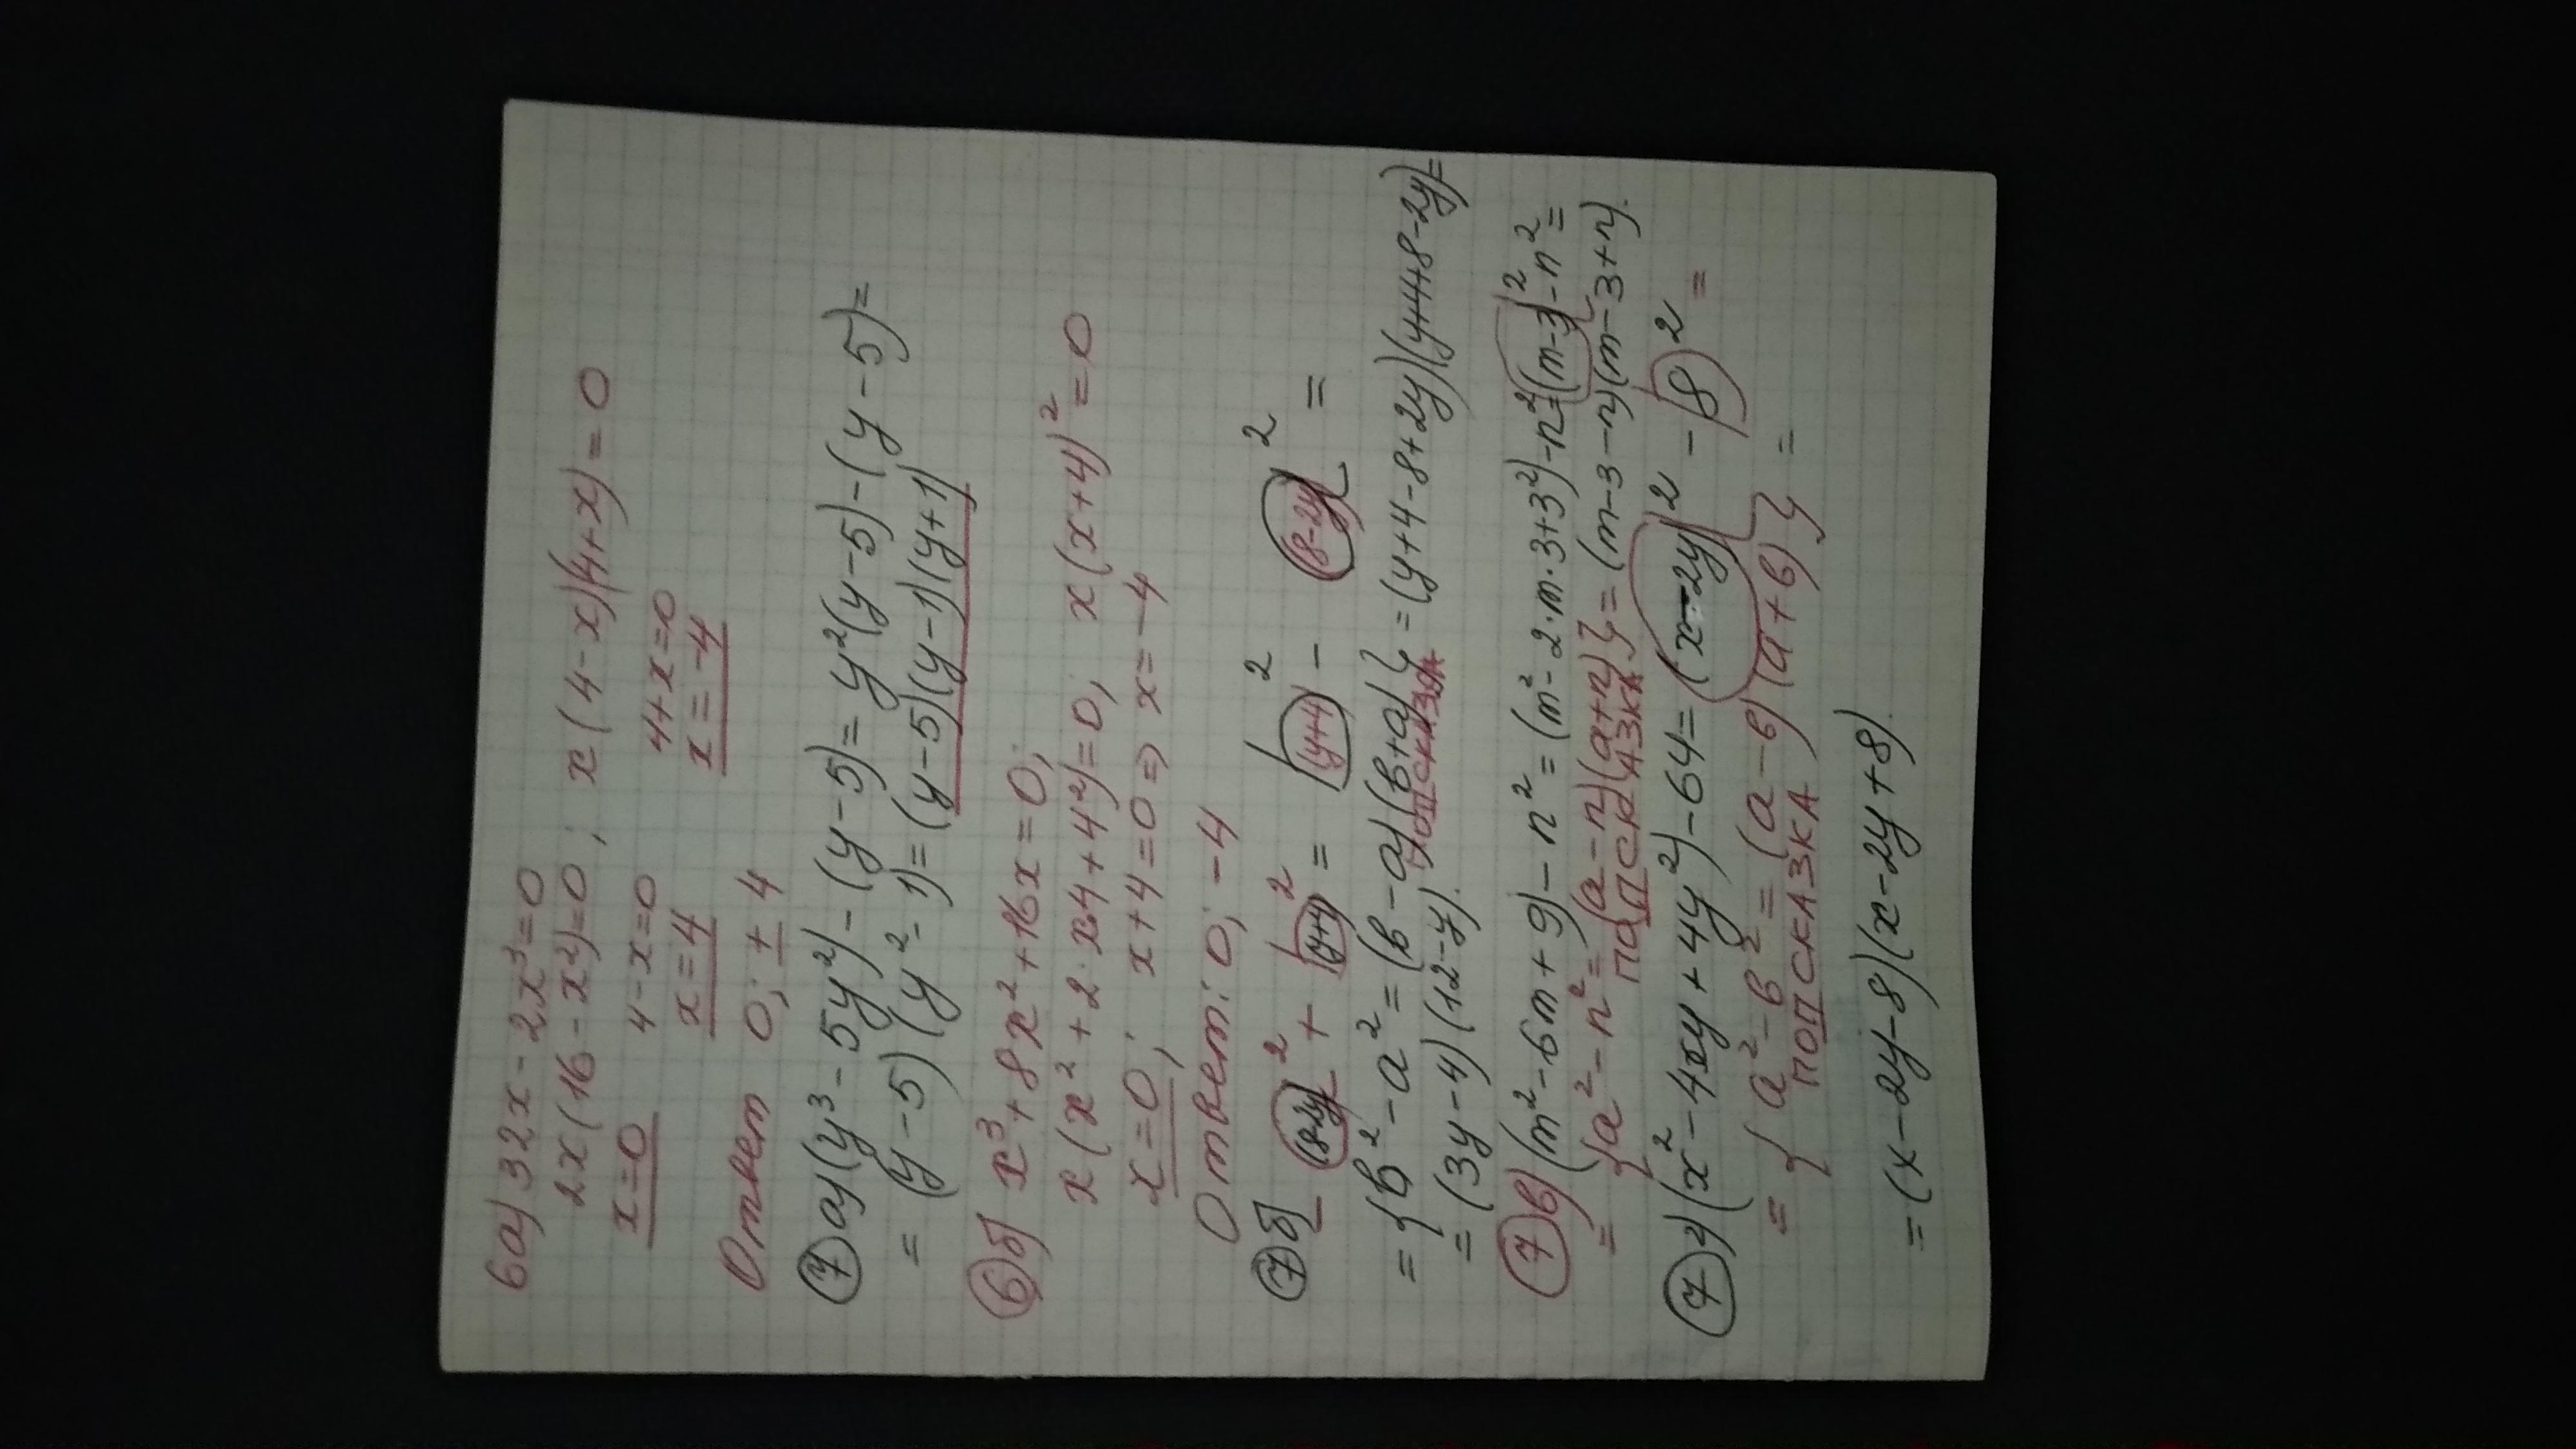 6а) 32x - 2x³ = 0
2x(16 - x²) = 0; x(4 - x)(4 + x) = 0
x = 0 4 - x = 0 4 + x = 0
x = 4 x = -4
Ответ 0; ± 4
7 а) (y³ - 5y²) - (y - 5) = y²(y - 5) - (y - 5) =
= (y - 5)(y² - 1) = (y - 5)(y - 1)(y + 1)
6 б) x³ + 8x² + 16x = 0;
x(x² + 2·x·4 + 4²) = 0; x(x + 4)² = 0
x = 0; x + 4 = 0 => x = -4
Ответ: 0; -4
7 б) -(8-2y)² + (y+4)² = (y+4)² - (8-2y)² =
= {в² - а² = (в - а)(в + а)} = (y + 4 - 8 + 2y)(y + 4 + 8 - 2y) =
подсказка
= (3y - 4)(12 - y).
7 в) (m² - 6m + 9) - n² = (m² - 2·m·3 + 3²) - n² = (m - 3)² - n² =
= {a² - n² = (a - n)(a + n)} = (m - 3 - n)(m - 3 + n).
подсказка
7 г) (x² - 4xy + 4y²) - 64 = (x - 2y)² - (8)² =
= {а² - в² = (а - в)(а + в)} =
подсказка
= (x - 2y - 8)(x - 2y + 8).